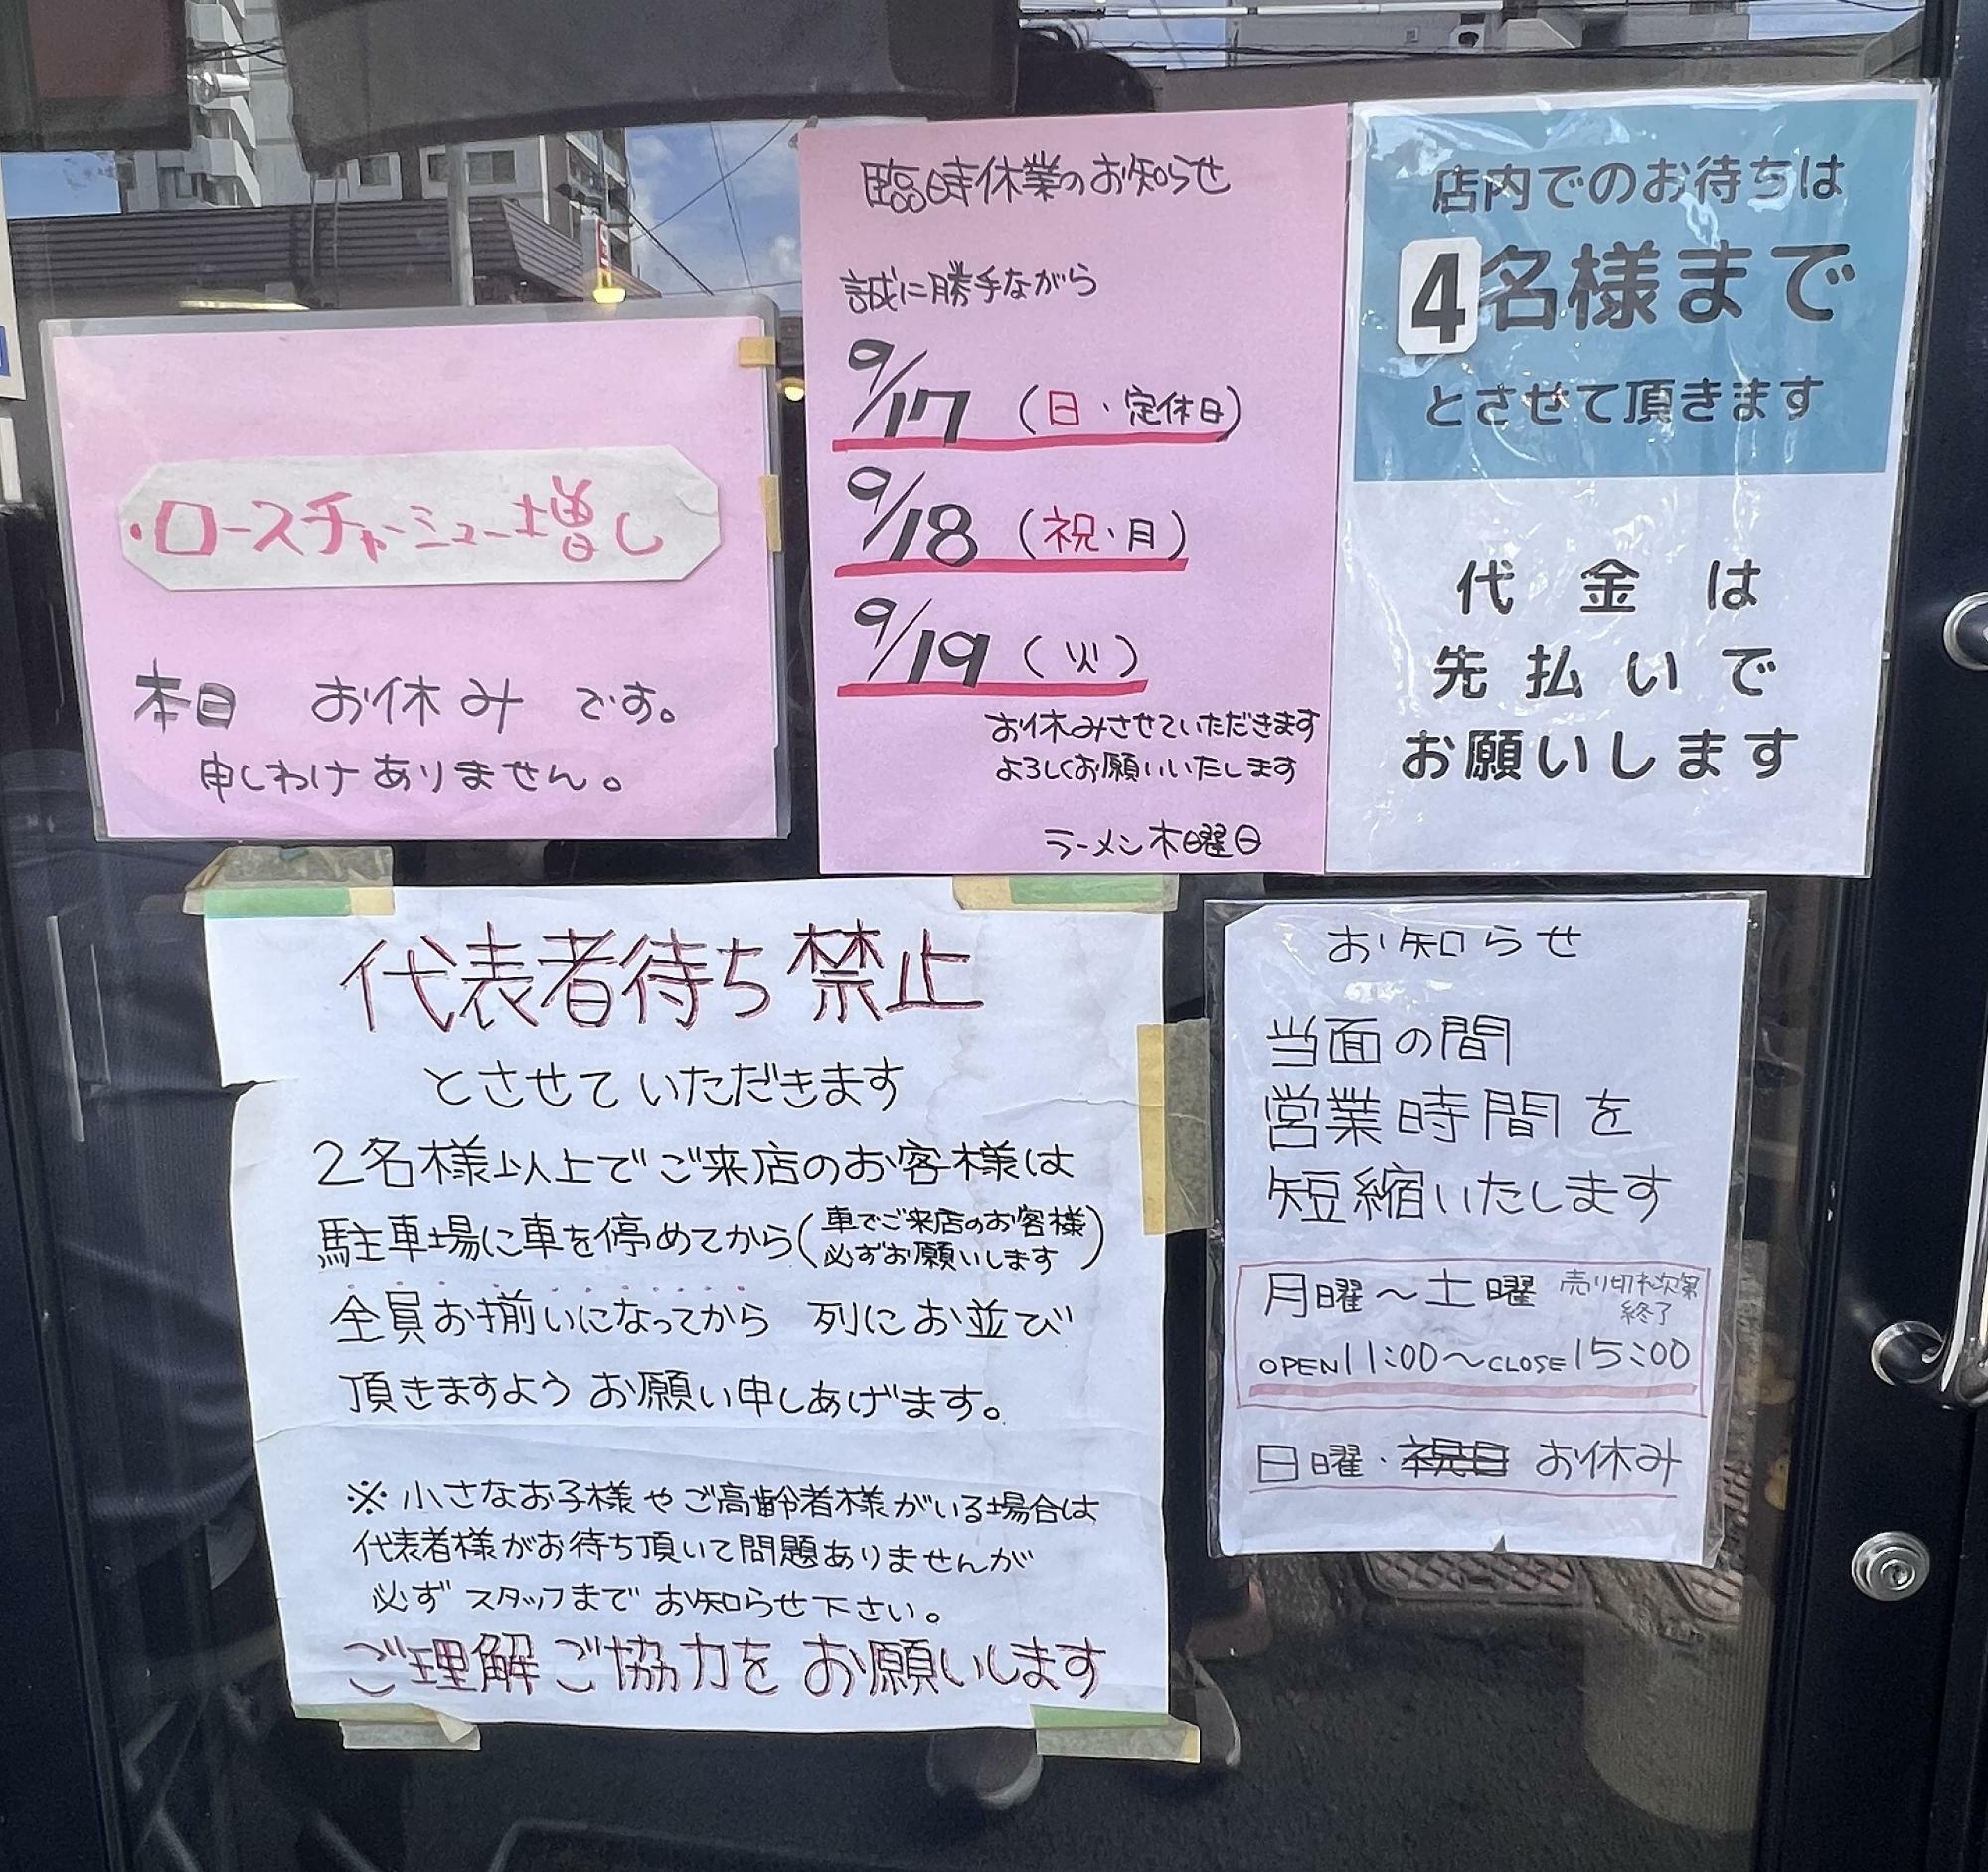 ・ロースチャーシュー増し
本日 お休み です。
申しわけありません。
臨時休業のお知らせ
誠に勝手ながら
9/17（日・定休日）
9/18（祝・月）
9/19（火）
お休みさせていただきます
よろしくお願いいたします
ラーメン木曜日
店内でのお待ちは
4名様まで
とさせて頂きます
代金は
先払いで
お願いします
代表者待ち禁止
とさせていただきます
2名様以上でご来店のお客様は
駐車場に車を停めてから（車でご来店のお客様
必ずお願いします）
全員お揃いになってから 列にお並び
頂きますよう お願い申しあげます。
※小さなお子様やご高齢者様がいる場合は
代表者様がお待ち頂いて問題ありませんが
必ずスタッフまで お知らせ下さい。
ご理解ご協力を お願いします
お知らせ
当面の間
営業時間を
短縮いたします
月曜〜土曜 売り切れ次第
終了
OPEN11:00〜CLOSE15:00
日曜・祝日 お休み